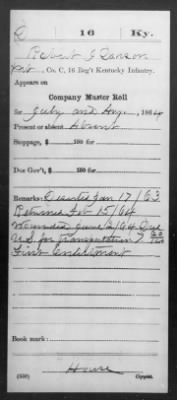 C 16 Ky.
Robert J Dawson
Pvt, Co. C, 16 Reg't Kentucky Infantry.
Appears on
Company Muster Roll
for July and Aug, 1864
Present or absent Absent
Stoppage, $ 100 for
Due Gov't, $ 100 for
Remarks: Deserted Jan 17/63
Returned Feb 15/64
Wounded June 2/64 Due
U.S. for Transportation 7
First Enlistment
Book mark:
Howe
Copyist.